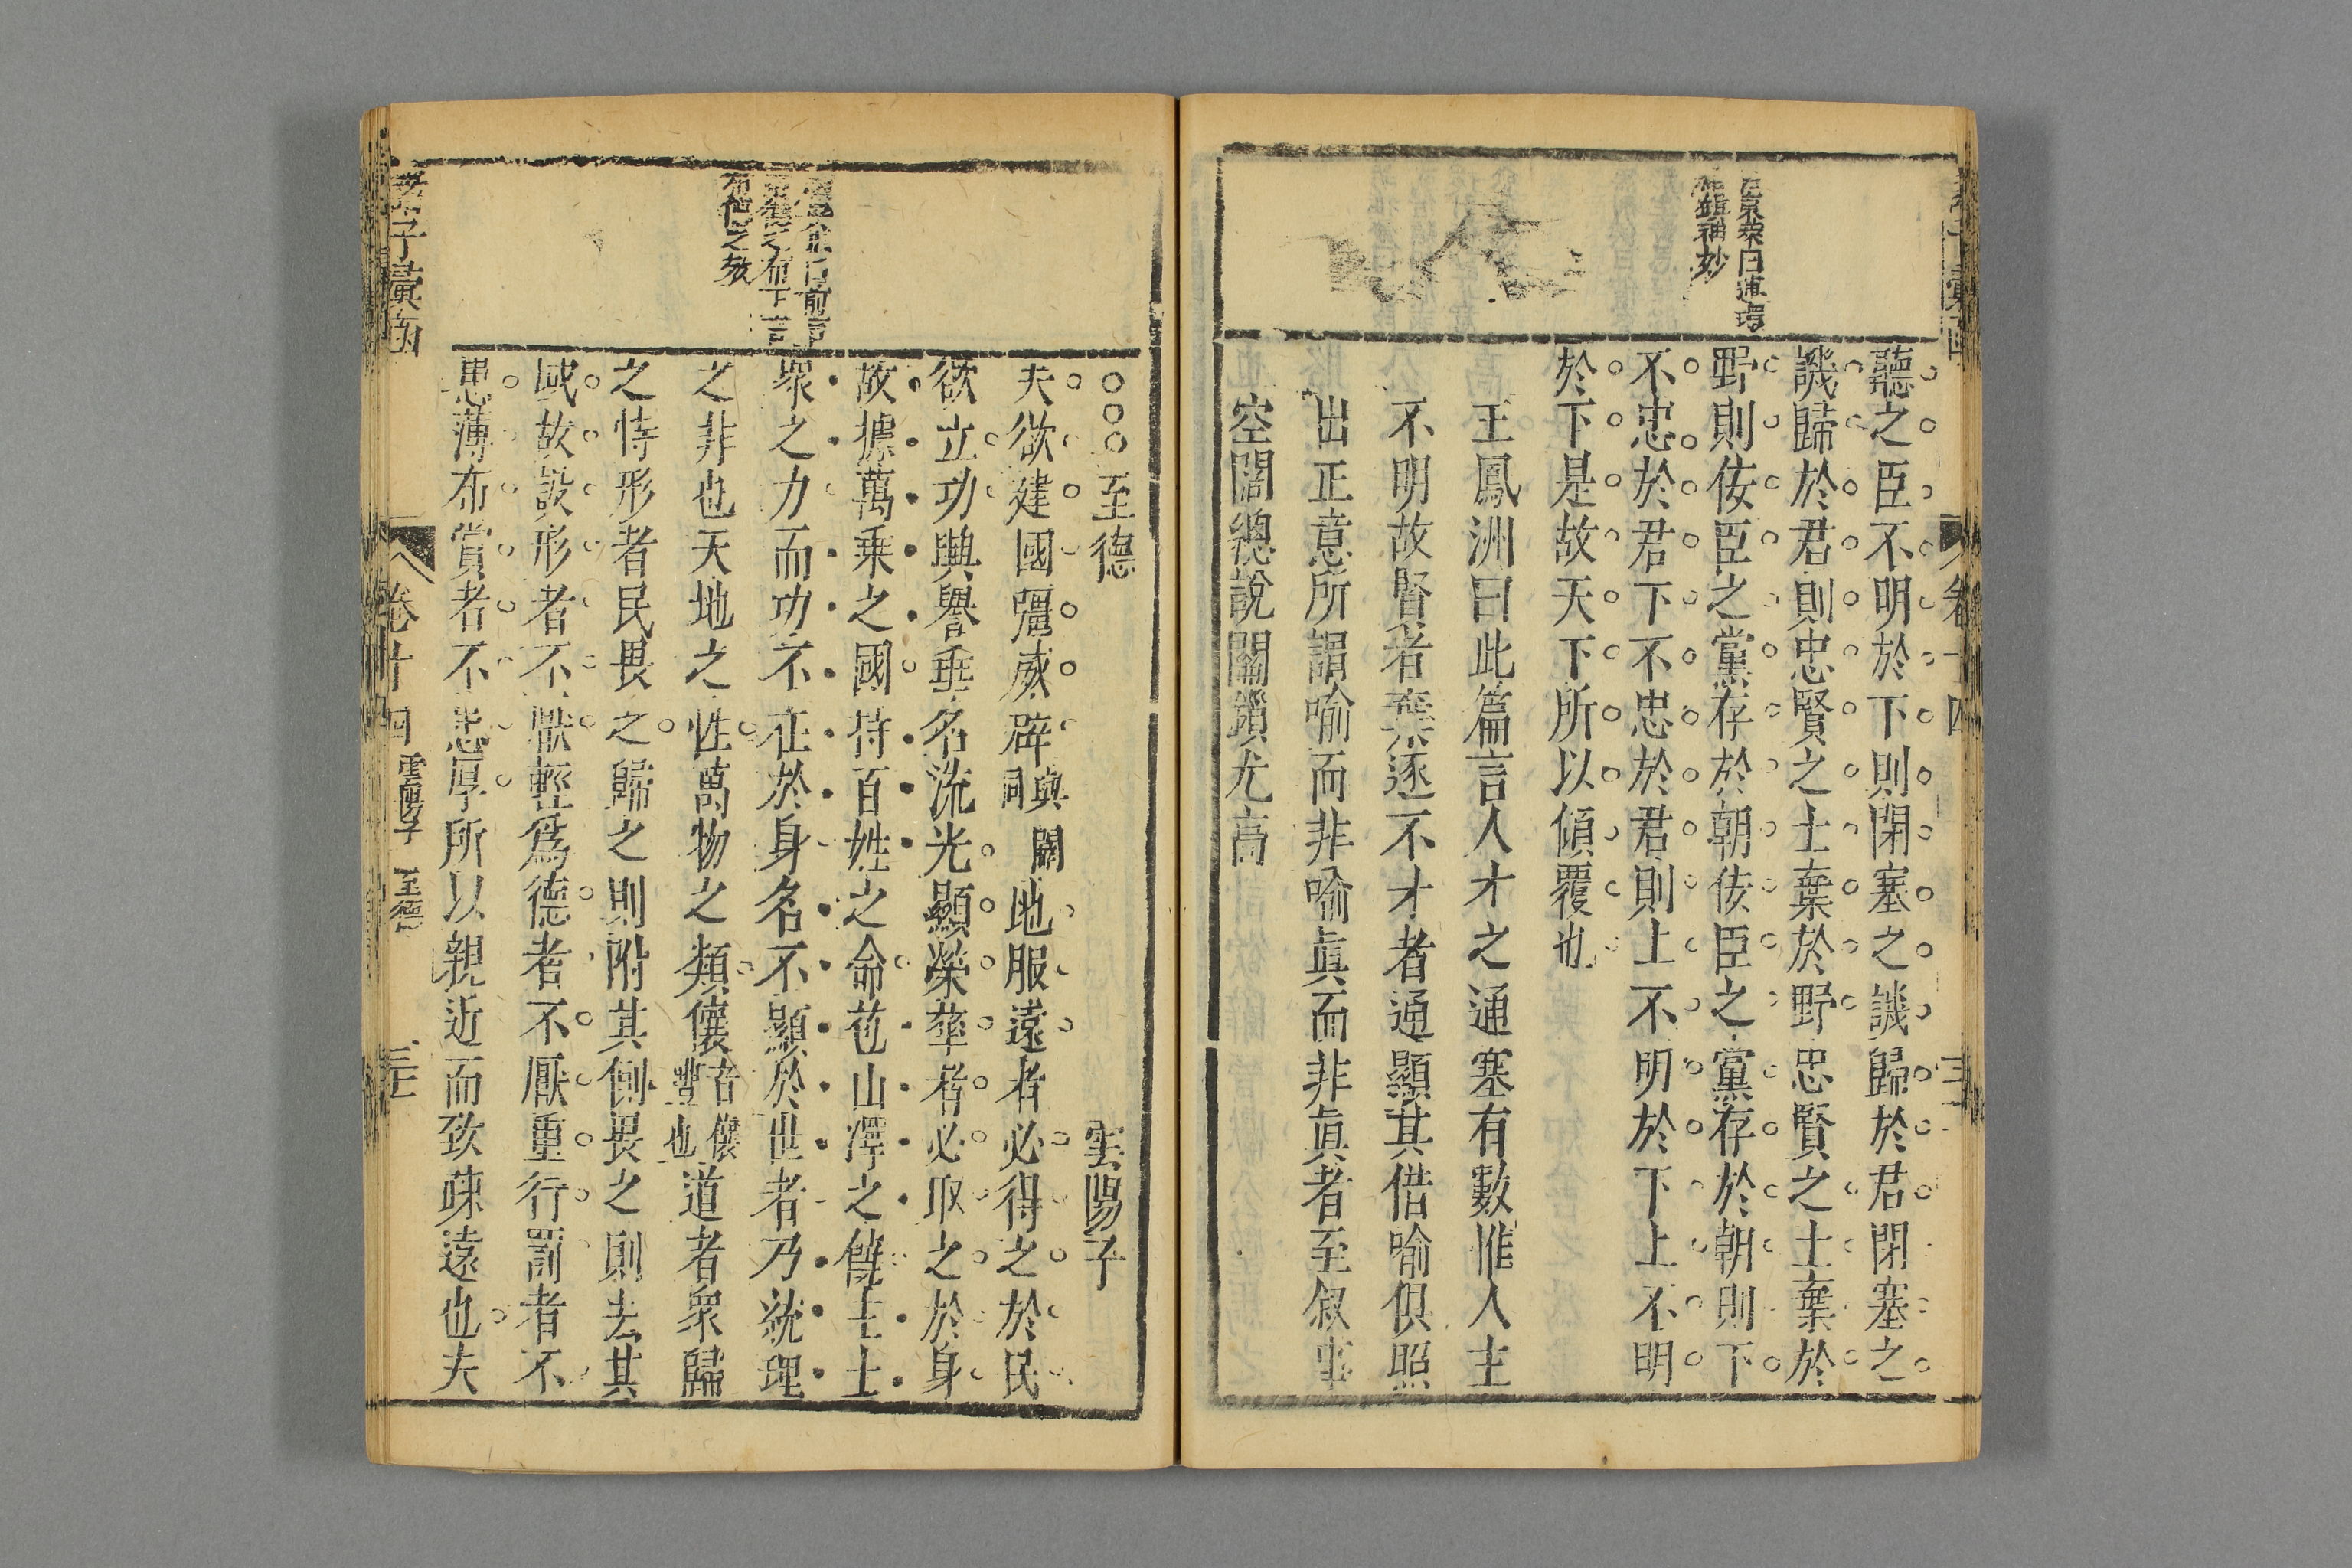 聽之臣不明於下則閉塞之譏歸於君閉塞之
譏歸於君則忠賢之士棄於野忠賢之士棄於
野則佞臣之黨存於朝佞臣之黨存於朝則下
不忠於君下不忠於君則上不明於下上不明
於下是故天下所以傾覆也
王鳳洲曰此篇言人才之通塞有數惟人主
不明故賢者棄逐不才者通顯其借喻俱照
出正意所謂喻而非喻眞而非眞者至叙事
空闊總說關鎖尤高
卷十四
至德
雲陽子
夫欲建國彊威辟與闢同地服遠者必得之於民
欲立功興譽垂名流光顯榮華者必取之於身
故據萬乗之國持百姓之命苞山澤之饒主士
衆之力而功不在於身名不顯於世者乃統理
之非也天地之性萬物之類儴音儴豐也道者衆歸
之恃形者民畏之歸之則附其側畏之則去其
域故設形者不猒輕爲德者不厭重行罰者不
患薄布賞者不患厚所以親近而致疎遠也夫
卷十四
雲陽子
至德